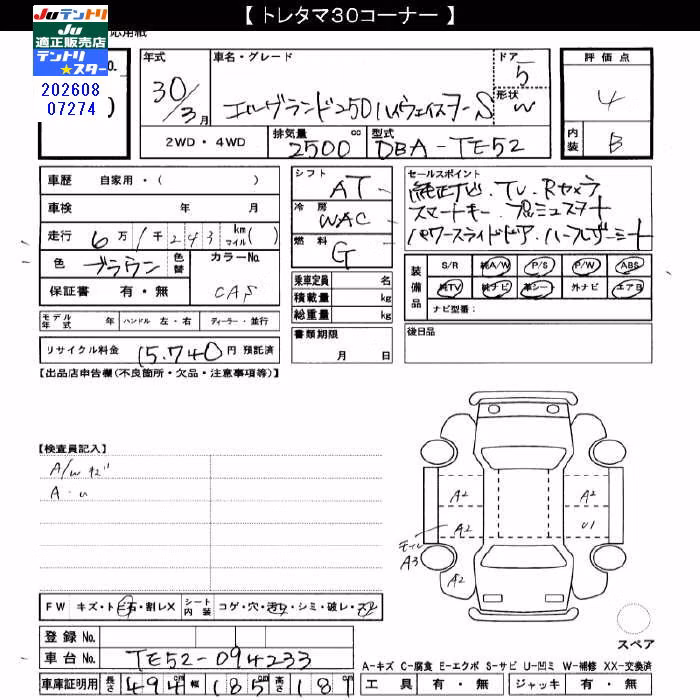 【 トレタマ30コーナー 】
Juテントリ
Ju
適正販売店
テントリ
★スター
202608
07274
年式
車名・グレード
ドア
5
評価点
30/3月
エルグランド250ハイウェイスターS
形状
W
4
2WD・4WD
排気量
2500 cc
型式
DBA-TE52
内装
B
車歴 自家用・( )
車検 年 月
走行 6万1千243 km マイル( )
色 ブラウン 色替 カラーNo.
保証書 有・無 CAS
モデル年式 年 ハンドル 左・右 ディーラー・並行
リサイクル料金 15,740円 預託済
シフト AT
冷房 WAC
燃料 G
乗車定員 名
積載量 kg
総重量 kg
書類期限
月 日
セールスポイント
純正ナビ・TV・Rカメラ
スマートキー・プッシュスタート
パワースライドドア・ハーフレザーシート
装備品
S/R 純A/W P/S P/W ABS
純TV 純ナビ 革シート 外ナビ エアB
ナビ型番:
後日品
【出品店申告欄(不良箇所・欠品・注意事項等)】
【検査員記入】
A/Wキズ
A・U
A2
A2
A2
U1
モール
A3
A2
FW キズ・トビ石・割レX
シート内装 コゲ・穴・汚レ・シミ・破レ・スレ
登録 No.
車台 No. TE52-094233
車庫証明用 長さ 494cm 幅 185cm 高さ 181
スペア
A-キズ C-腐食 E-エクボ S-サビ U-凹ミ W-補修 XX-交換済
工具 有・無 ジャッキ 有・無